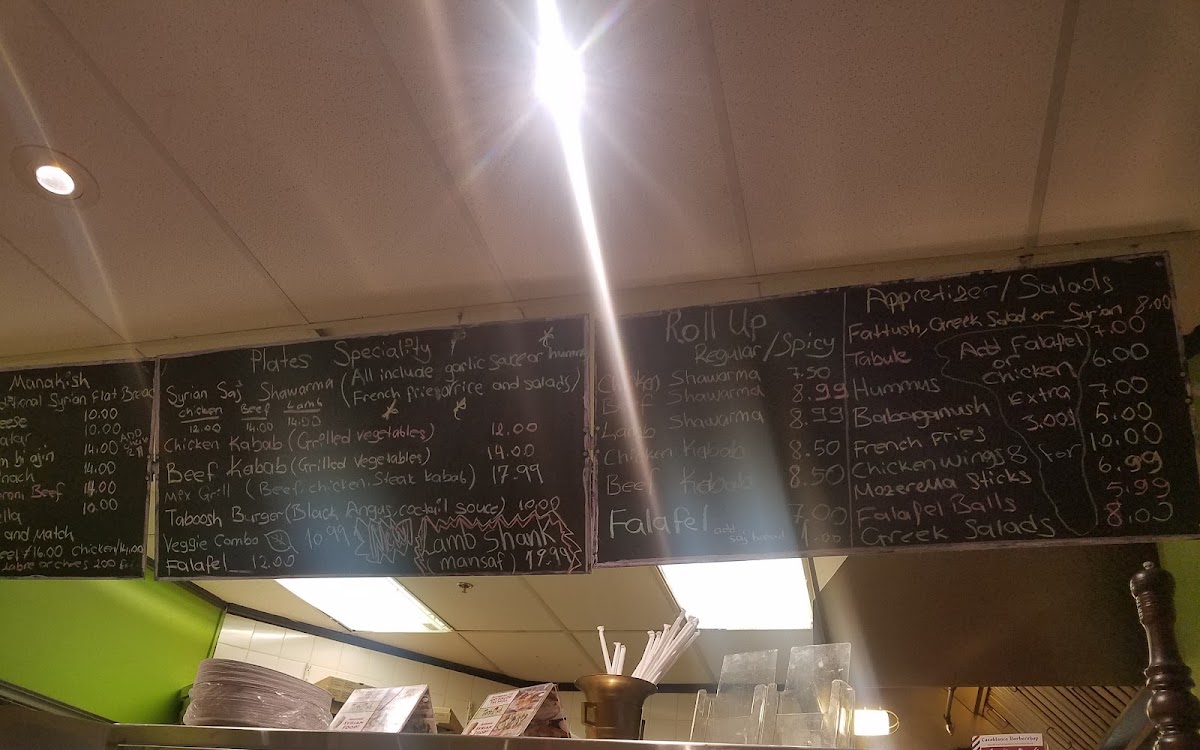 Manakish
Syrian Flat Bread
10.00
10.00
14.00
14.00
Beef 14.00
10.00
and Match
chicken/14.00
Plates Speciality
Syrian Saj Shawarma (All include garlic sauce or hummus
French Fries or rice and salads)
Chicken Beef Lamb
12.00 14.00 14.00
Chicken Kabab (Grolled vegetables) 12.00
Beef Kabab (Grilled vegetables) 14.00
Mix Grill (Beef, chicken, Steak kabab) 17.99
Taboosh Burger (Black Angus, cocktail souce) 10.00
Veggie Combo 10.99
Falafel 12.00
Lamb Shank
(mansaf) 19.99
Roll Up
Regular/Spicy
Chicken Shawarma 7.50
Beef Shawarma 8.99
Lamb Shawarma 8.99
Chicken Kabab 8.50
Beef Kabab 8.50
Falafel 7.00
add saj bread 1.00
Appretizer/Salads
Fattush, Greek Salad or Syrian 8.00
Tabule 7.00
Hummus 6.00
Babaganush 7.00
French Fries 5.00
Chicken wings 8 for 10.00
Mozerella Sticks 6.99
Falafel Balls 5.99
Greek Salads 8.00
Add Falafel
or
Chicken
Extra
3.00$